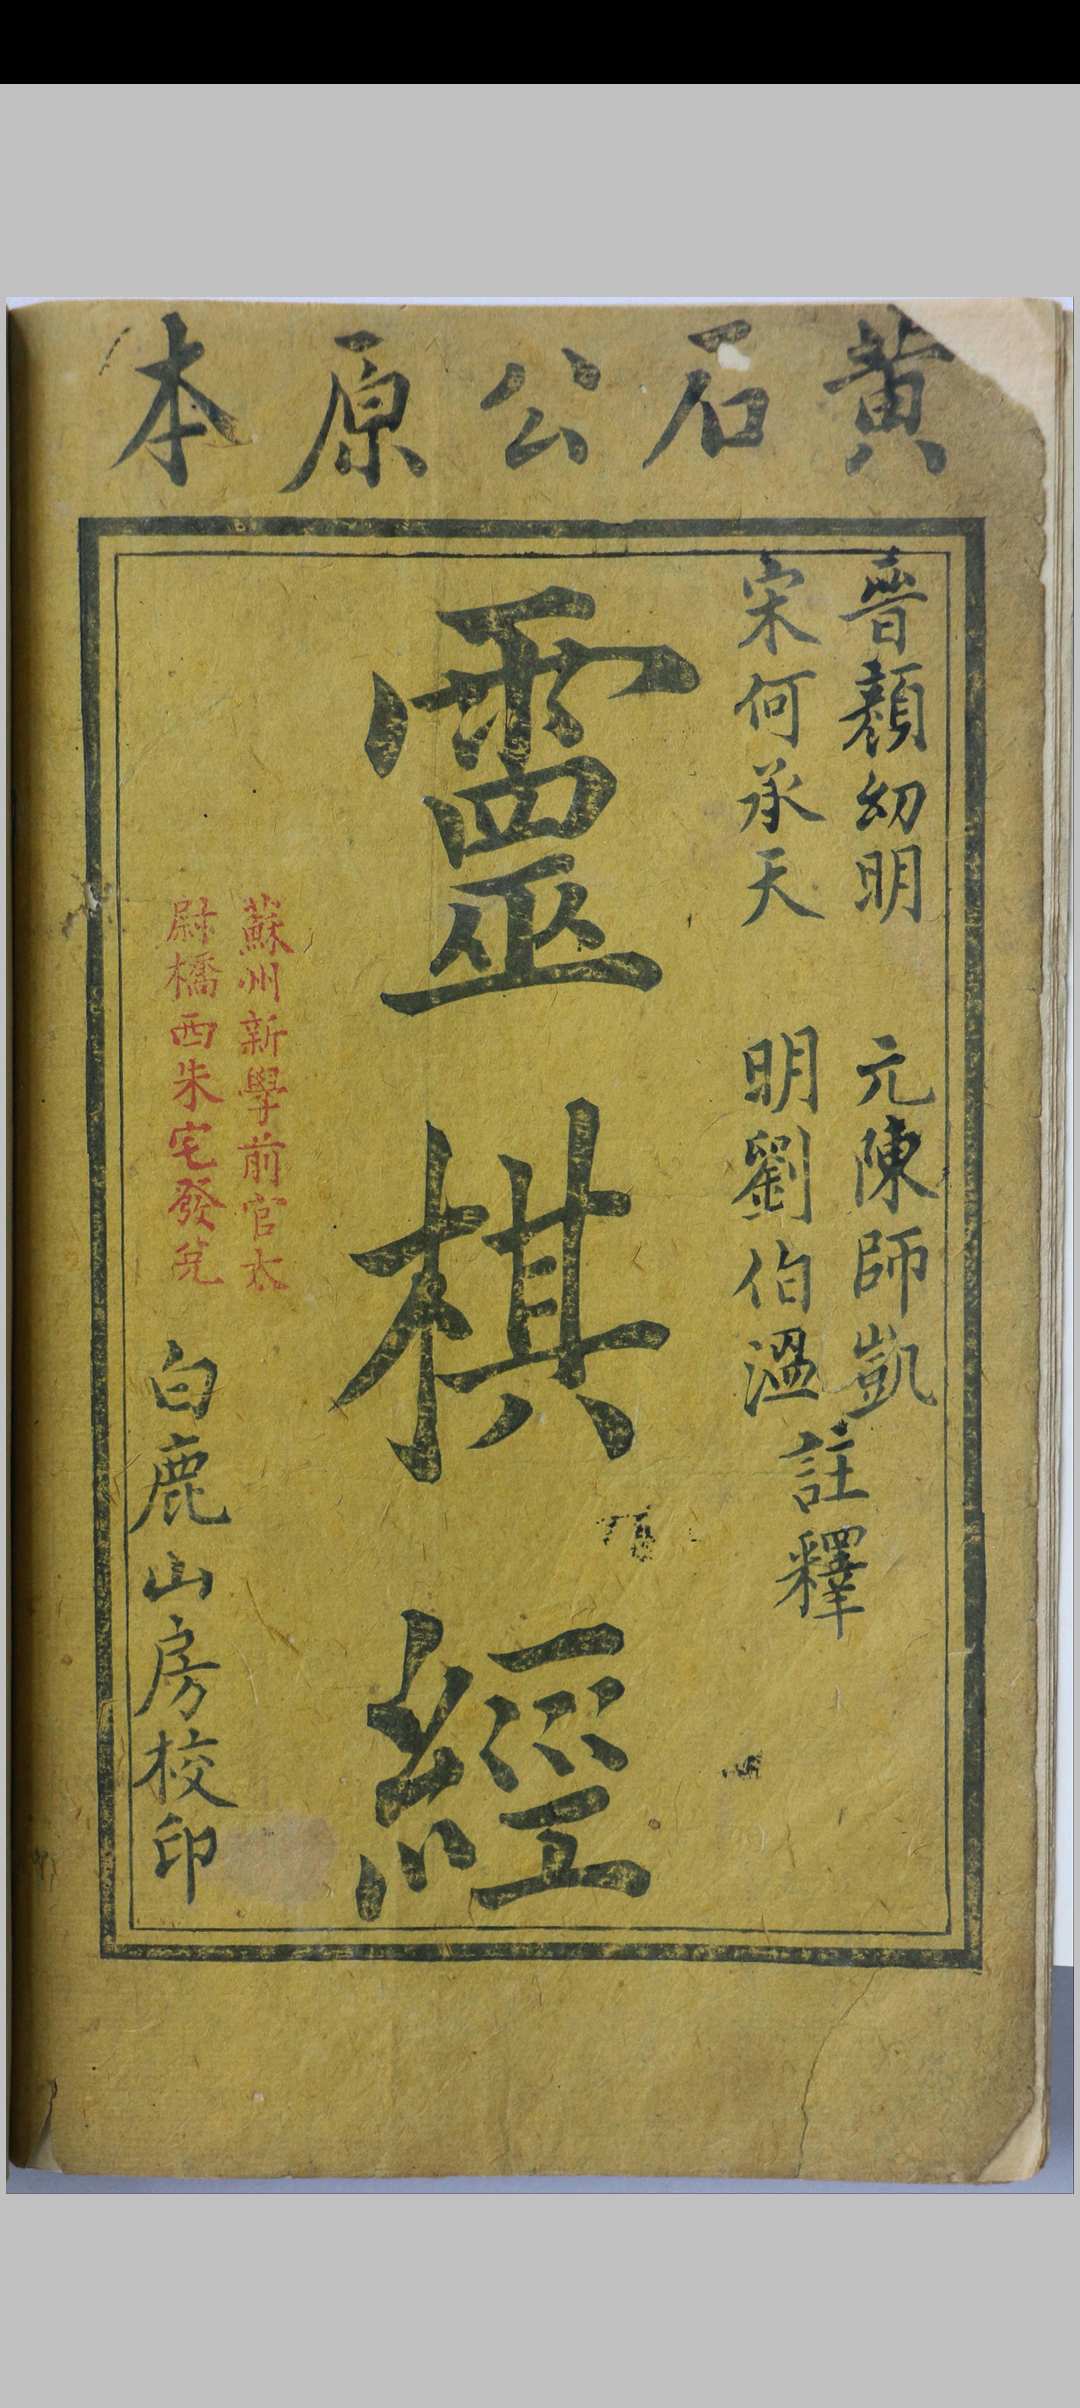 黃石公原本
晉顏幼明
宋何承天
元陳師凱
明劉伯溫
註釋
靈棋經
蘇州新學前官太
尉橋西朱宅發兌
白鹿山房校印